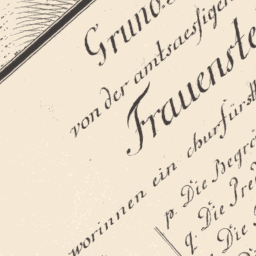 Grund
von der amtsaessigen
Frauenste
worinnen ein churfürstl
p. Die Begrä
q. Die Pre
Die
Die